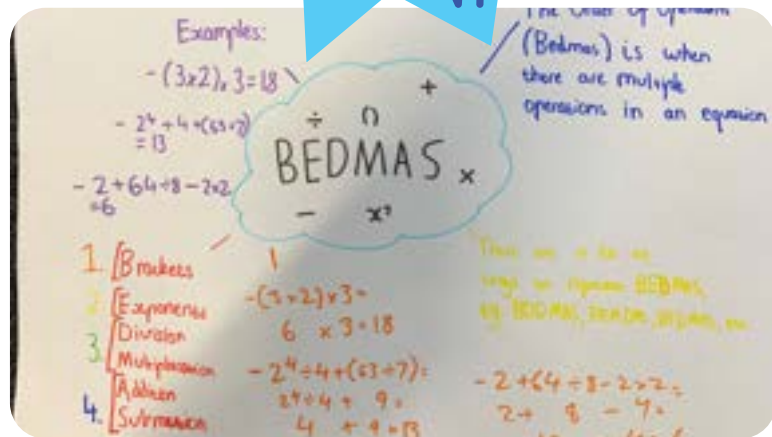 Examples:
- (3x2)x3=18
- 2⁴÷4+(63÷7)
=13
- 2+64÷8-2x2
=6
The Order of Operations
(Bedmas) is when
there are multiple
operations in an equation
÷ () +
BEDMAS x
- x²
1. [Brackets
2 [Exponents
3. [Division
Multiplication
4. [Addition
Subtraction
-(3x2)x3=
6 x3=18
- 2⁴÷4+(63÷7)=
2⁴÷4 + 9=
4 + 9=13
BEDMAS,
eg BODMAS,
- 2+64÷8-2x2=
2+ 8 - 4=